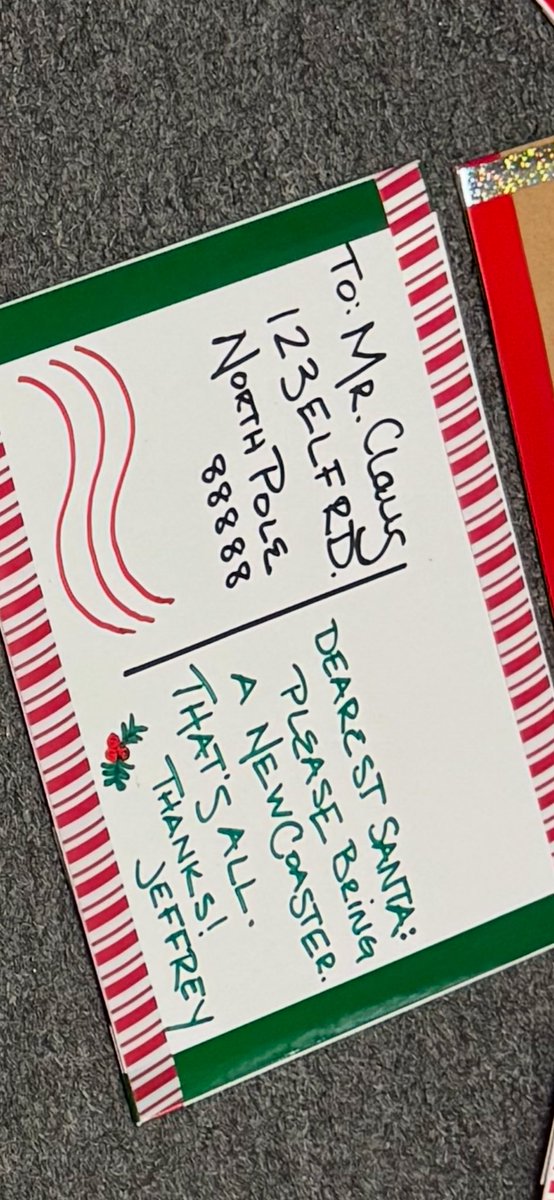 To: Mr. Claus
123 ELF RD.
NORTH POLE
88888
DEAREST SANTA:
PLEASE BRING
A NEW COASTER.
THAT'S ALL.
THANKS!
JEFFREY